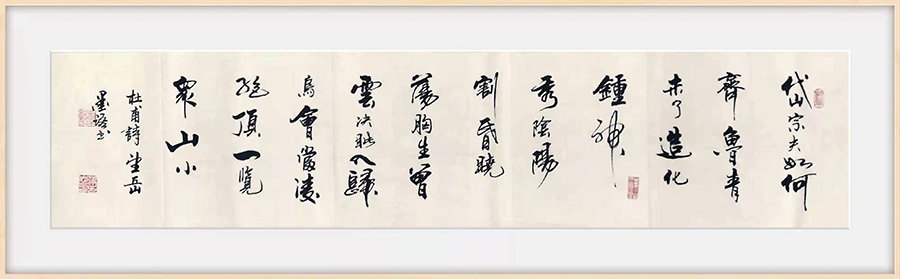 岱宗夫如何
齊魯青
未了造化
鍾神
秀陰陽
割昏曉
蕩胸生曾
雲决眦入歸
鳥會當凌
絶頂一覽
衆山小
杜甫詩望岳
墨书